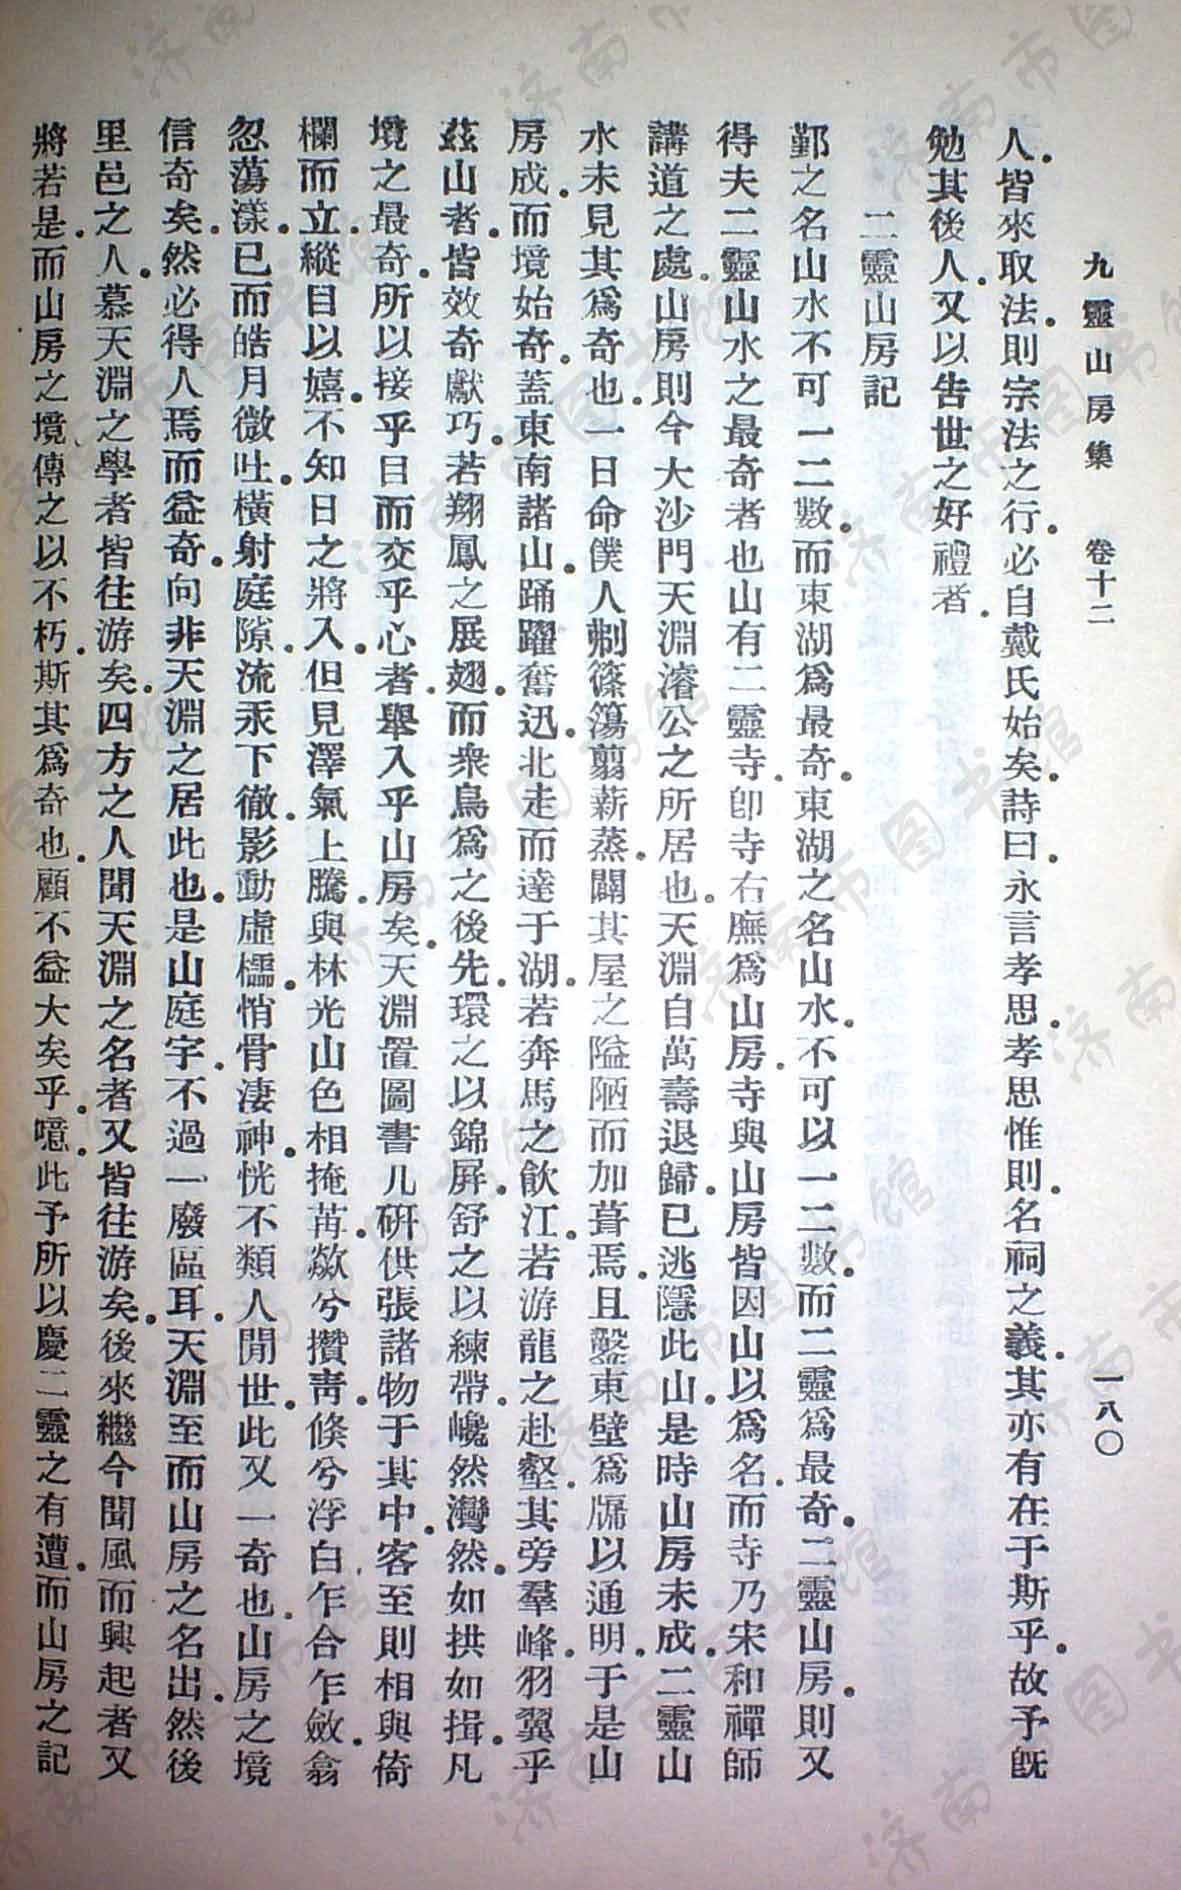 九靈山房集　卷十二　一八〇
人.皆來取法.則宗法之行.必自戴氏始矣.詩曰.永言孝思.孝思惟則.名祠之義.其亦有在于斯乎.故予既
勉其後人.又以告世之好禮者.
二靈山房記
鄞之名山水不可一二數.而東湖爲最奇.東湖之名山水.不可以一二數.而二靈爲最奇.二靈山房.則又
得夫二靈山水之最奇者也山有二靈寺.卽寺右廡爲山房.寺與山房皆因山以爲名.而寺乃宋和禪師
講道之處.山房則今大沙門天淵濬公之所居也.天淵自萬壽退歸.已逃隱此山.是時山房未成.二靈山
水未見其爲奇也.一日命僕人剬篠簜翦薪蒸.闢其屋之隘陋而加葺焉.且鑿東壁爲牖以通明.于是山
房成.而境始奇.蓋東南諸山.踊躍奮迅.北走而達于湖.若奔馬之飲江.若游龍之赴壑.其旁羣峰.羽翼乎
茲山者.皆效奇獻巧.若翔鳳之展翅.而衆鳥爲之後先.環之以錦屏.舒之以練帶.巉然灣然.如拱如揖.凡
境之最奇.所以接乎目而交乎心者.舉入乎山房矣.天淵置圖書几硏.供張諸物于其中.客至則相與倚
欄而立.縱目以嬉.不知日之將入.但見澤氣上騰.與林光山色相掩苒.歘兮攢靑.倏兮浮白.乍合乍斂.翕
忽蕩漾.已而皓月微吐.橫射庭隙.流汞下徹.影動虛櫺.悄骨淒神.恍不類人閒世.此又一奇也.山房之境
信奇矣.然必得人焉而益奇.向非天淵之居此也.是山庭宇.不過一廢區耳.天淵至而山房之名出.然後
里邑之人.慕天淵之學者皆往游矣.四方之人聞天淵之名者又皆往游矣.後來繼今聞風而興起者又
將若是.而山房之境傳之以不朽.斯其爲奇也.顧不益大矣乎.噫.此予所以慶二靈之有遭.而山房之記